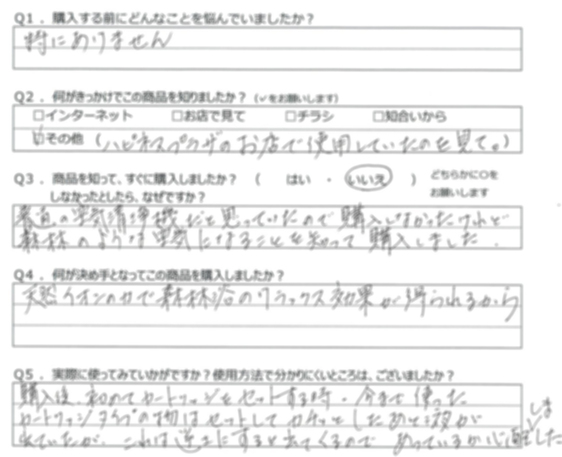 Q1．購入する前にどんなことを悩んでいましたか？
特にありません
Q2．何がきっかけでこの商品を知りましたか？（✓をお願いします）
□インターネット　□お店で見て　□チラシ　□知合いから
☑その他（ハピネスプラザのお店で使用していたのを見て。）
Q3．商品を知って、すぐに購入しましたか？（　はい　・　いいえ　）どちらかに○を
しなかったとしたら、なぜですか？　お願いします
普通の空気清浄機だと思っていたので購入しなかったけれど
森林のような空気になることを知って購入しました.
Q4．何が決め手となってこの商品を購入しましたか？
天然イオンの力で森林浴のリラックス効果が得られるから
Q5．実際に使ってみていかがですか？使用方法で分かりにくいところは、ございましたか？
購入後、初めてカートリッジをセットする時、今まで使った
カートリッジタイプの物はセットしてカチッとしたあと液が
出ていたが、これは逆さにすると出てくるので あっているか心配しました